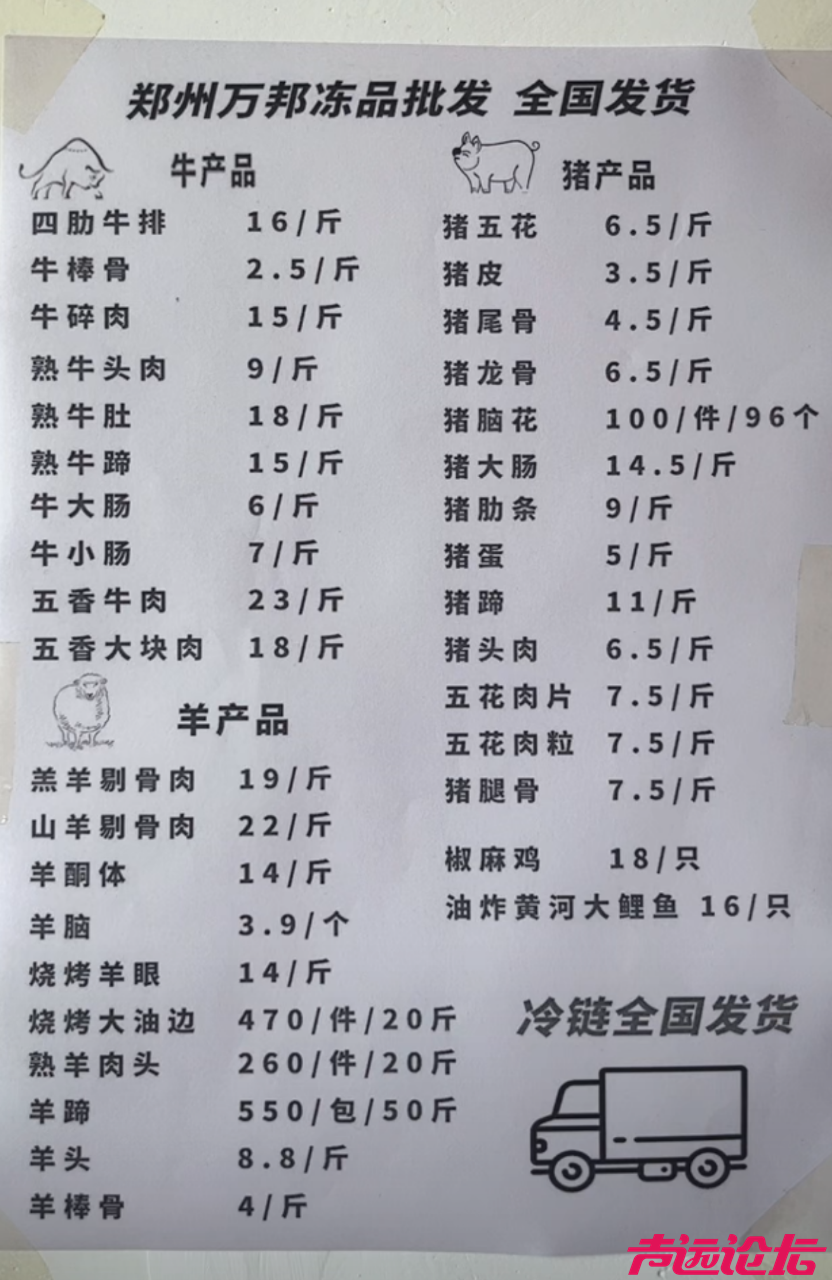 郑州万邦冻品批发 全国发货
牛产品
四肋牛排 16/斤
牛棒骨 2.5/斤
牛碎肉 15/斤
熟牛头肉 9/斤
熟牛肚 18/斤
熟牛蹄 15/斤
牛大肠 6/斤
牛小肠 7/斤
五香牛肉 23/斤
五香大块肉 18/斤
羊产品
羔羊剔骨肉 19/斤
山羊剔骨肉 22/斤
羊酮体 14/斤
羊脑 3.9/个
烧烤羊眼 14/斤
烧烤大油边 470/件/20斤
熟羊肉头 260/件/20斤
羊蹄 550/包/50斤
羊头 8.8/斤
羊棒骨 4/斤
猪产品
猪五花 6.5/斤
猪皮 3.5/斤
猪尾骨 4.5/斤
猪龙骨 6.5/斤
猪脑花 100/件/96个
猪大肠 14.5/斤
猪肋条 9/斤
猪蛋 5/斤
猪蹄 11/斤
猪头肉 6.5/斤
五花肉片 7.5/斤
五花肉粒 7.5/斤
猪腿骨 7.5/斤
椒麻鸡 18/只
油炸黄河大鲤鱼 16/只
冷链全国发货
声远论坛